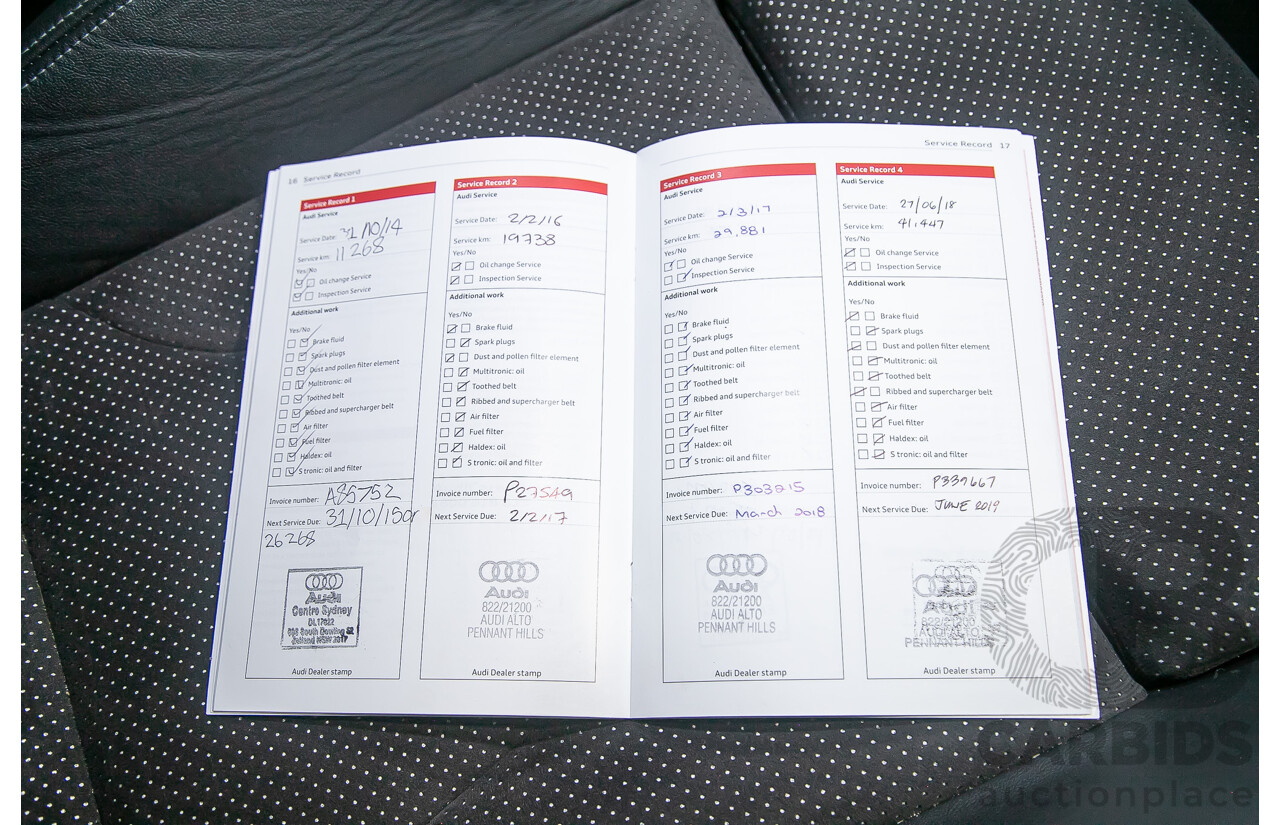 16 Service Record
Service Record 1
Audi Service
Service Date: 31/10/14
Service km: 11 268
Yes/No
Oil change Service
Inspection Service
Additional work
Yes/No
Brake fluid
Spark plugs
Dust and pollen filter element
Multitronic: oil
Toothed belt
Ribbed and supercharger belt
Air filter
Fuel filter
Haldex: oil
S tronic: oil and filter
Invoice number: A85752
Next Service Due: 31/10/15 or
26268
Audi
Centre Sydney
South Dowling
NSW 2017
Audi Dealer stamp
Service Record 2
Audi Service
Service Date: 2/2/16
Service km: 19738
Yes/No
Oil change Service
Inspection Service
Additional work
Yes/No
Brake fluid
Spark plugs
Dust and pollen filter element
Multitronic: oil
Toothed belt
Ribbed and supercharger belt
Air filter
Fuel filter
Haldex: oil
S tronic: oil and filter
Invoice number:
Next Service Due: 2/2/17
Audi
822/21200
AUDI ALTO
PENNANT HILLS
Audi Dealer stamp
Service Record 17
Service Record 3
Audi Service
Service Date: 2/3/17
Service km: 29,881
Yes/No
Oil change Service
Inspection Service
Additional work
Yes/No
Brake fluid
Spark plugs
Dust and pollen filter element
Multitronic: oil
Toothed belt
Ribbed and supercharger belt
Air filter
Fuel filter
Haldex: oil
S tronic: oil and filter
Invoice number: P303215
Next Service Due: March 2018
Audi
822/21200
AUDI ALTO
PENNANT HILLS
Audi Dealer stamp
Service Record 4
Audi Service
Service Date: 27/06/18
Service km: 41,447
Yes/No
Oil change Service
Inspection Service
Additional work
Yes/No
Brake fluid
Spark plugs
Dust and pollen filter element
Multitronic: oil
Toothed belt
Ribbed and supercharger belt
Air filter
Fuel filter
Haldex: oil
S tronic: oil and filter
Invoice number: P339667
Next Service Due: JUNE 2019
Audi
822/21200
AUDI ALTO
PENNANT HILLS
Audi Dealer stamp
CARBIDS
auctionplace